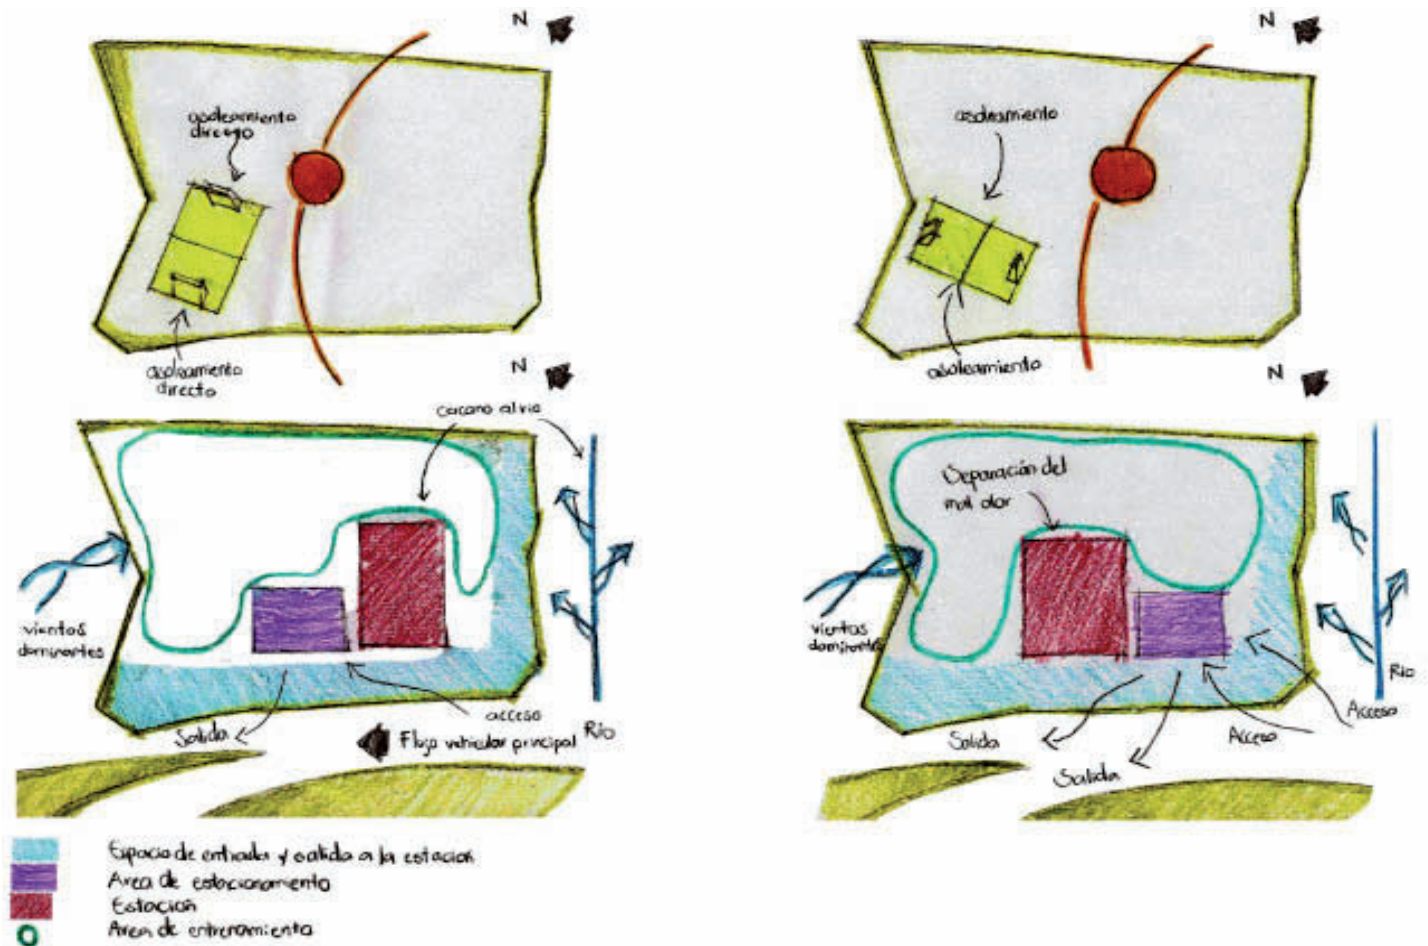 N
asoleamiento
directo
asoleamiento
directo
N
asoleamiento
asoleamiento
N
al rio
vientos
dominantes
Salida
acceso
Flujo vehicular principal
Río
N
Separación del
mal olor
vientos
dominantes
Salida
Salida
Acceso
Acceso
Río
Espacio de entrada y salida a la estación
Area de estacionamiento
Estación
Area de entrenamiento